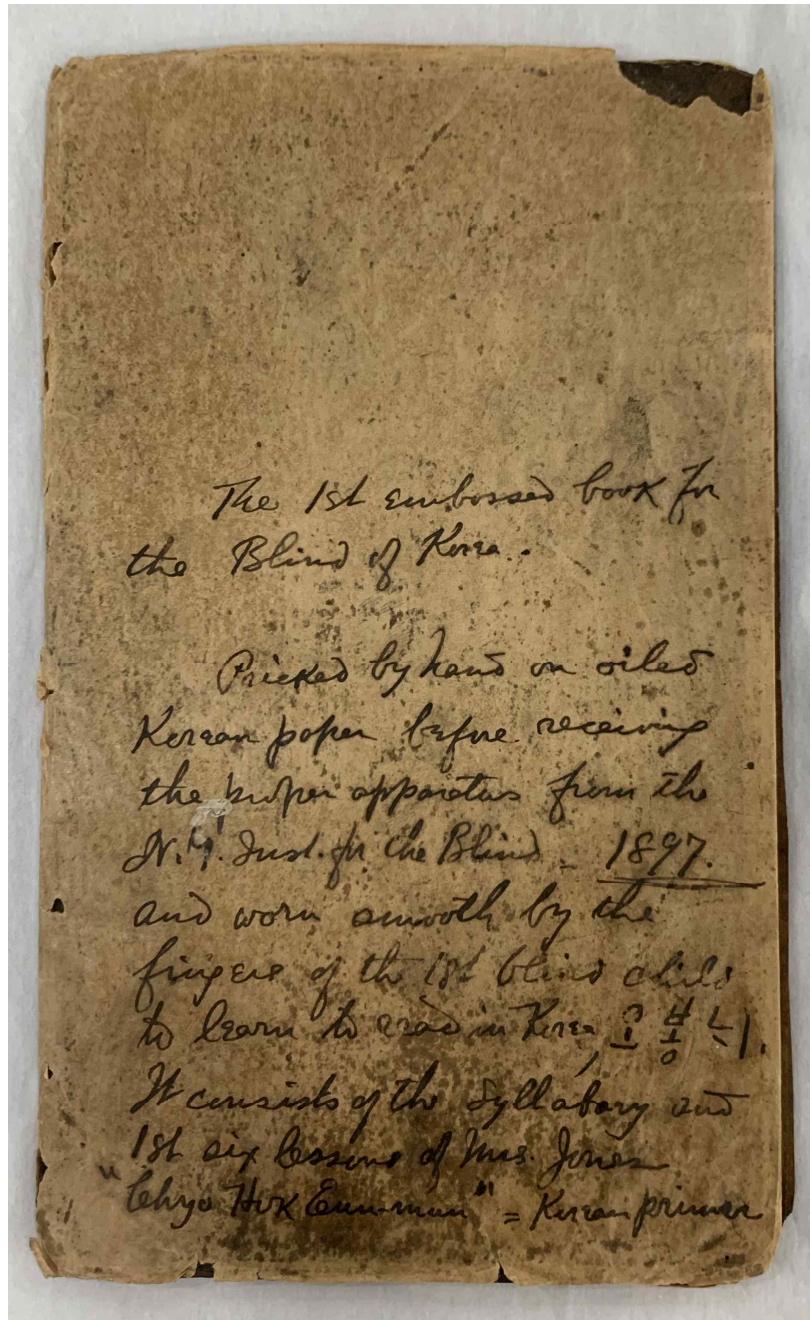 The 1st embossed book for
the Blind of Korea.
Pricked by hand on oiled
Korean paper before receiving
the proper apparatus from the
N.Y. Inst. for the Blind – 1897.
and worn smooth by the
fingers of the 1st blind child
to learn to read in Korea, 오봉뇌.
It consists of the Syllabary and
1st six lessons of Mrs. Jones
"Chyo Hok Eun-mun" = Korean primer